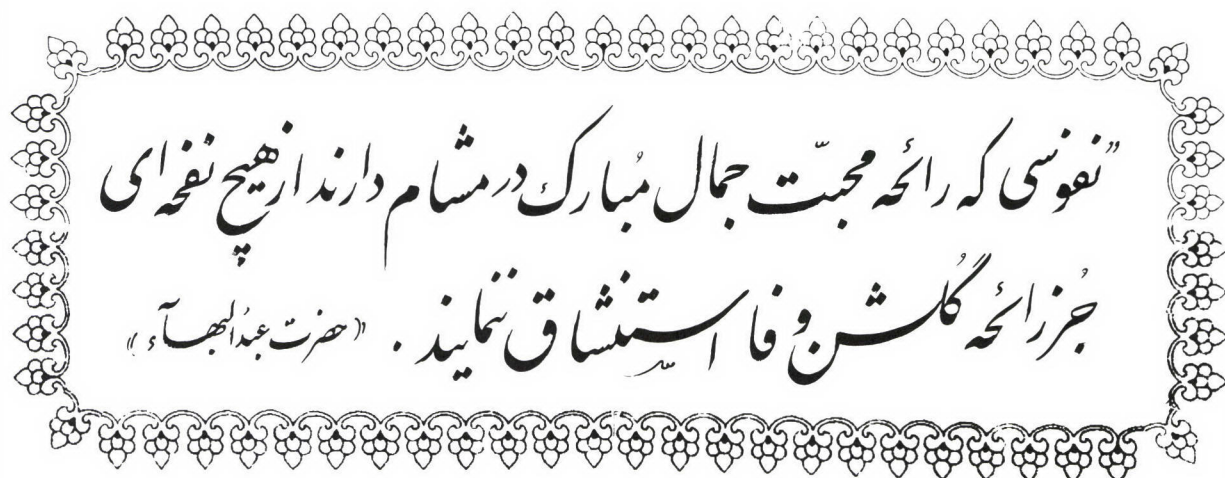 ”نفوسی که رائحه محبّت جمال مُبارک در مشام دارند از هیچ نفحه ای
جُز رائحه گُلشن وفا استنشاق ننمایند . ((حضرت عبدُالبهآء))